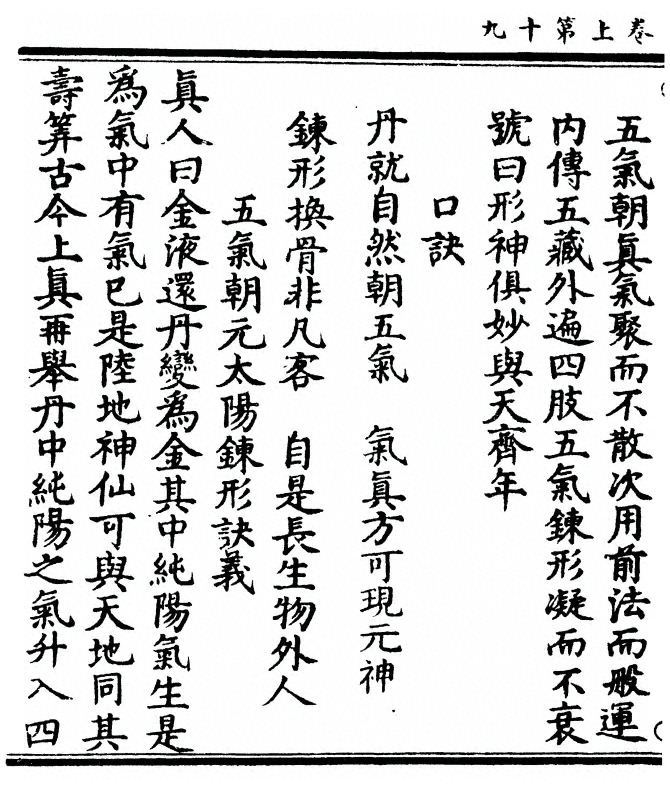 卷上第十九
五氣朝眞氣聚而不散次用前法而般運
内傳五藏外遍四肢五氣鍊形凝而不衰
號曰形神俱妙與天齊年
口訣
丹就自然朝五氣　氣眞方可現元神
鍊形換骨非凡客　自是長生物外人
五氣朝元太陽鍊形訣義
眞人曰金液還丹變爲金其中純陽氣生是
爲氣中有氣巳是陸地神仙可與天地同其
壽筭古今上眞再舉丹中純陽之氣升入四